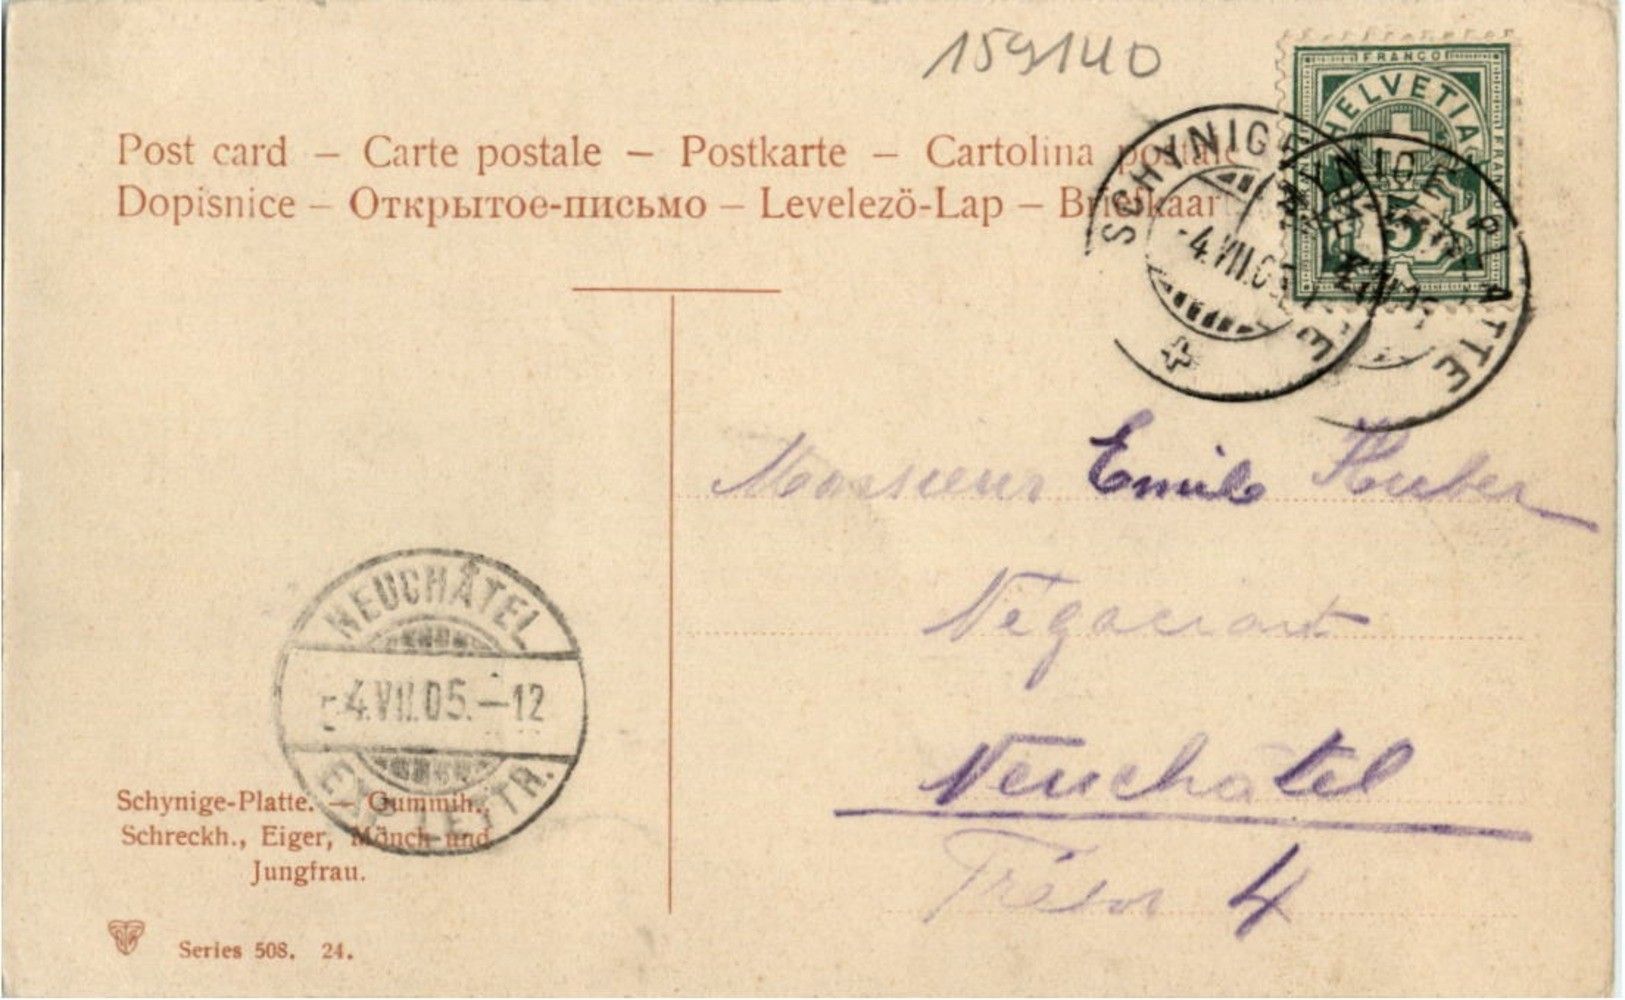 159140
FRANCO
HELVETIA
Post card – Carte postale – Postkarte – Cartolina postale
Dopisnice – Открытое-письмо – Levelező-Lap – Briefkaart
SCHYNIGE PLATTE
-4.VII.05
SCHYNIGE PLATTE
5
Monsieur Emile Huber
Négociant
Neuchâtel
Trésor 4
NEUCHÂTEL
-4.VII.05.-12
EXP. LETTR.
Schynige-Platte. — Gummih.,
Schreckh., Eiger, Mönch und
Jungfrau.
Series 508. 24.